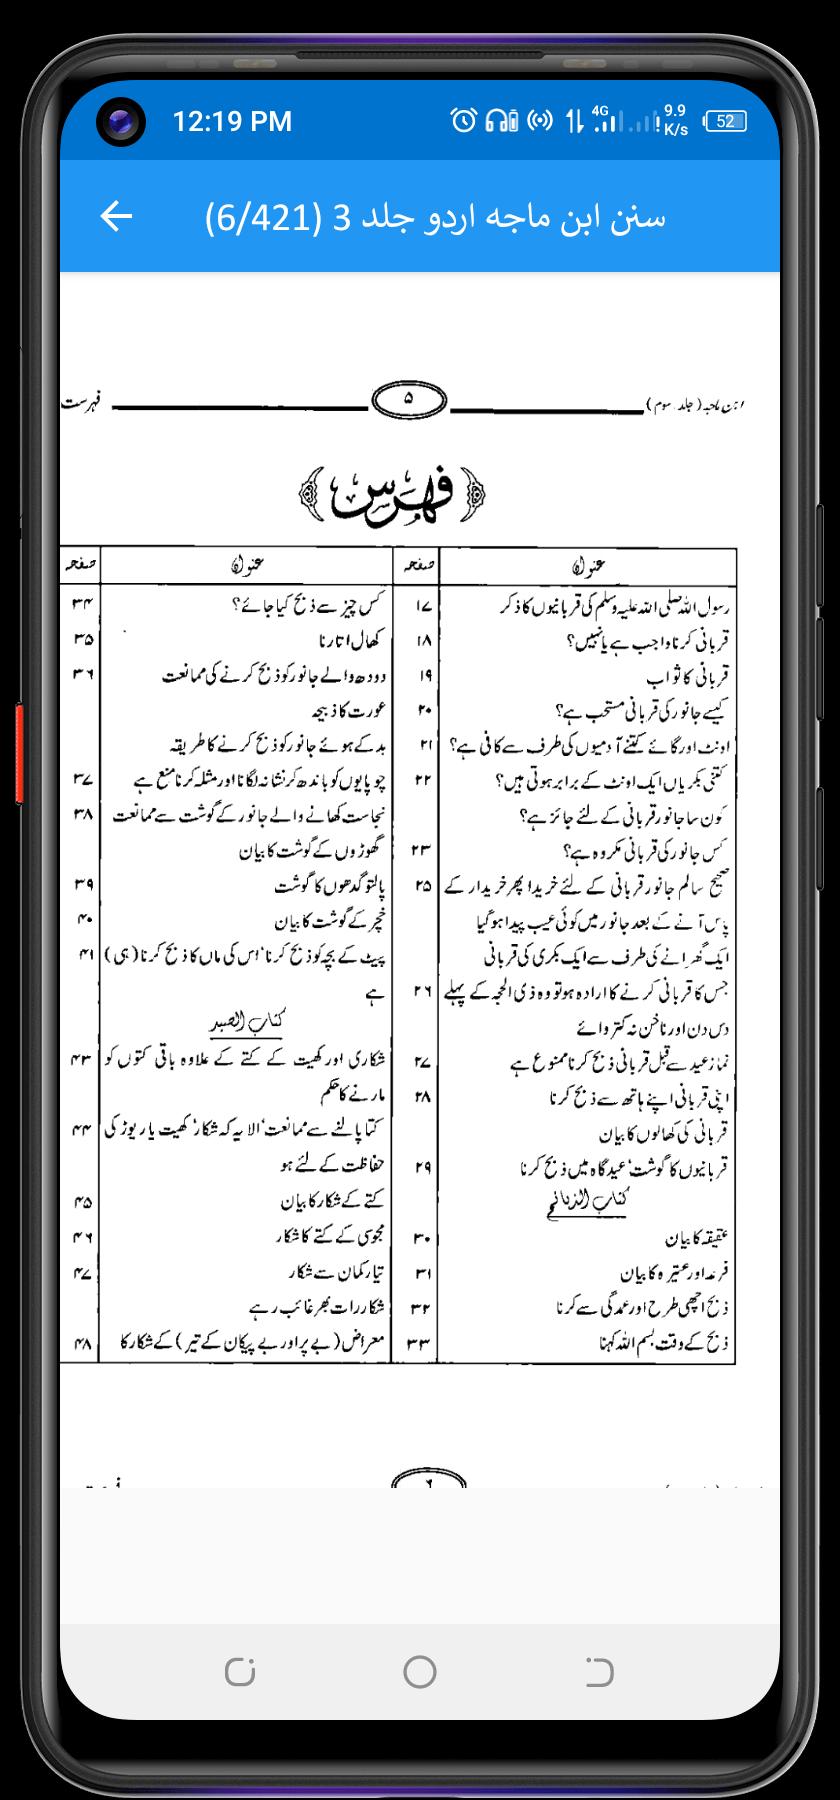 12:19 PM
4G
9.9
K/s
52
سنن ابن ماجه اردو جلد 3 (6/421)
ابن ماجہ (جلد سوم)
۵
فہرست
فہرس
عنوان
صفحہ
رسول اللہ صلی اللہ علیہ وسلم کی قربانیوں کا ذکر ۱۷
قربانی کرنا واجب ہے یا نہیں؟ ۱۸
قربانی کا ثواب ۱۹
کیسے جانور کی قربانی مستحب ہے؟ ۲۰
اونٹ اور گائے کتنے آدمیوں کی طرف سے کافی ہے؟ ۲۱
کتنی بکریاں ایک اونٹ کے برابر ہوتی ہیں؟ ۲۲
کون سا جانور قربانی کے لئے جائز ہے؟
کس جانور کی قربانی مکروہ ہے؟ ۲۳
صحیح سالم جانور قربانی کے لئے خریدا پھر خریدار کے ۲۵
پاس آنے کے بعد جانور میں کوئی عیب پیدا ہو گیا
ایک گھرانے کی طرف سے ایک بکری کی قربانی
جس کا قربانی کرنے کا ارادہ ہو تو وہ ذی الحجہ کے پہلے ۲۶
دس دن اور ناخن نہ کتروائے
نماز عید سے قبل قربانی ذبح کرنا ممنوع ہے ۲۷
اپنی قربانی اپنے ہاتھ سے ذبح کرنا ۲۸
قربانی کی کھالوں کا بیان
قربانیوں کا گوشت‘ عیدگاہ میں ذبح کرنا ۲۹
کتاب الذبائح
عقیقہ کا بیان ۳۰
فرعہ اور عتیرہ کا بیان ۳۱
ذبح اچھی طرح اور عمدگی سے کرنا ۳۲
ذبح کے وقت بسم اللہ کہنا ۳۳
عنوان
صفحہ
کس چیز سے ذبح کیا جائے؟ ۳۴
کھال اتارنا ۳۵
دودھ والے جانور کو ذبح کرنے کی ممانعت ۳۶
عورت کا ذبیحہ
بدکے ہوئے جانور کو ذبح کرنے کا طریقہ
چوپایوں کو باندھ کر نشانہ لگانا اور مثلہ کرنا منع ہے ۳۷
نجاست کھانے والے جانور کے گوشت سے ممانعت ۳۸
گھوڑوں کے گوشت کا بیان
پالتو گدھوں کا گوشت ۳۹
خچر کے گوشت کا بیان ۴۰
پیٹ کے بچہ کو ذبح کرنا‘ اس کی ماں کا ذبح کرنا (ہی) ۴۱
ہے
کتاب الصید
شکاری اور کھیت کے کتے کے علاوہ باقی کتوں کو ۴۳
مارنے کا حکم
کتا پالنے سے ممانعت‘ الا یہ کہ شکار‘ کھیت یا ریوڑ کی ۴۴
حفاظت کے لئے ہو
کتے کے شکار کا بیان ۴۵
مجوسی کے کتے کا شکار ۴۶
تیار کمان سے شکار ۴۷
شکار رات بھر غائب رہے
معراض (بے پر اور بے پیکان کے تیر) کے شکار کا ۴۸